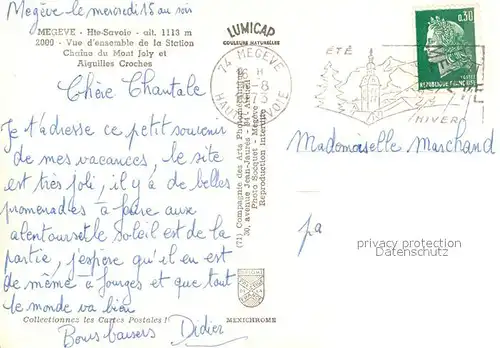 Megève le mercredi 15 au soir
MEGEVE - Hte-Savoie - alt. 1113 m
2000 - Vue d'ensemble de la Station
Chaîne du Mont Joly et
Aiguilles Croches
Chère Chantale
Je t'adresse ce petit souvenir
de mes vacances, le site
est très joli, il y a de belles
promenades à faire aux
alentours et le soleil est de la
partie, j'espère qu'il en est
de même à Jouges et que tout
le monde va bien
Collectionnez les Cartes Postales !
Bons baisers Didier
LUMICAP
COULEURS NATURELLES
74 MEGEVE
16 H
-8
HAUTE SAVOIE
(71) Compagnie des Arts Photomécaniques
50, Avenue Jean-Jaurès - 94 - Arcueil
Photo Socquet - Megève
Reproduction Interdite
MEXICHROME
ÉTÉ
HIVER
0,30
REPUBLIQUE FRANÇAISE
POSTES
Mademoiselle Marchand
pa
privacy protection
Datenschutz